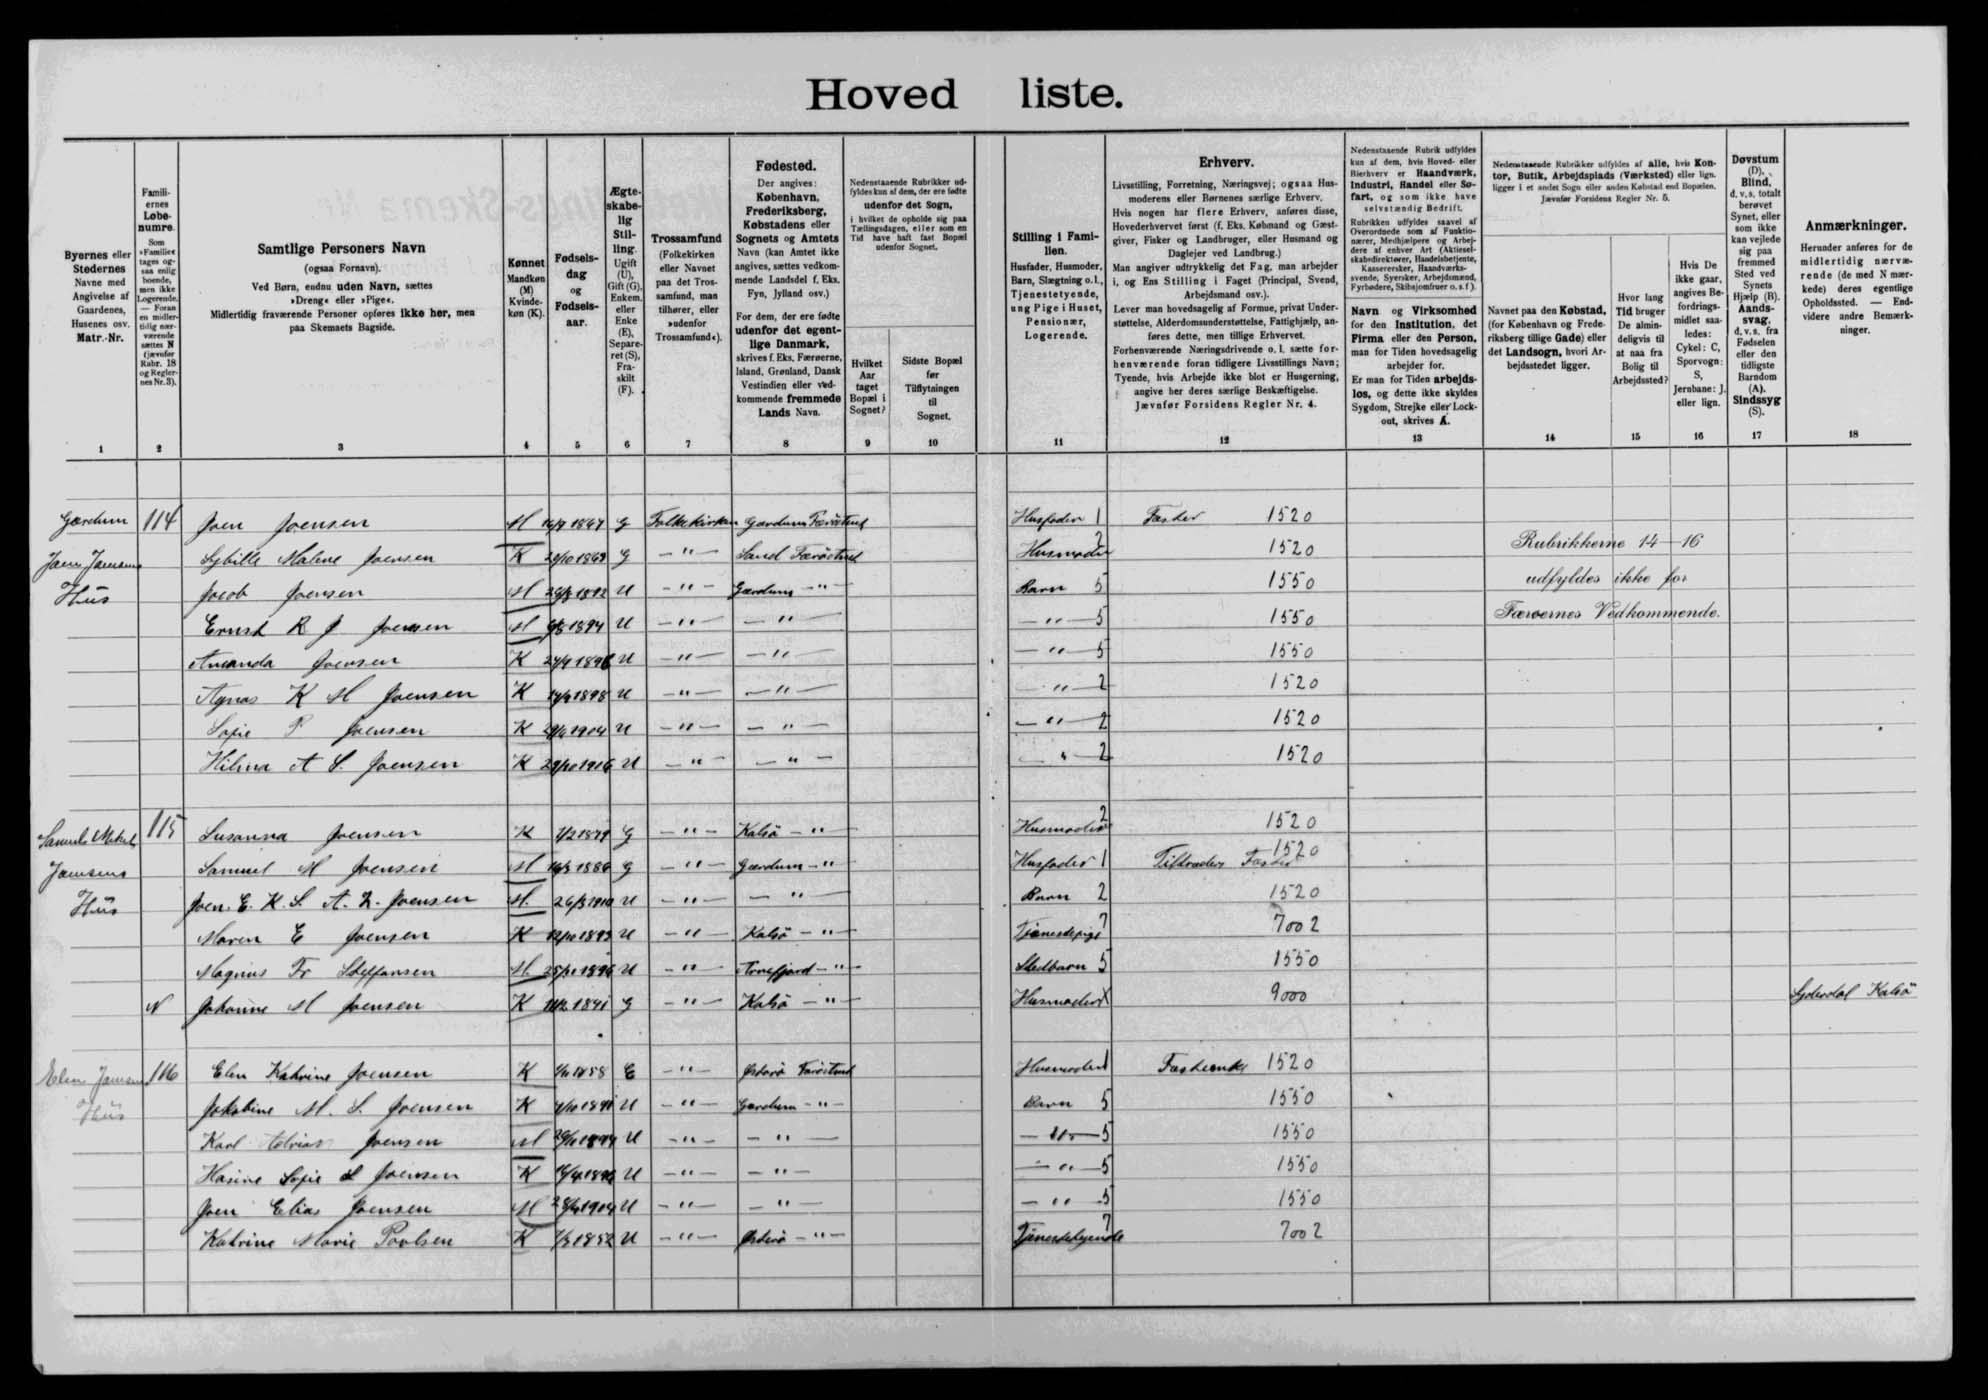 Hoved liste.
Byernes eller Stedernes Navne med Angivelse af Gaardenes, Husenes osv. Matr.-Nr.
Familiernes Løbenumre. Som »Familie« tages ogsaa enlig boende, men ikke Logerende. — Foran en midlertidig nærværende sættes N (jævnfør Rubr. 18 og Reglernes Nr. 3).
Samtlige Personers Navn (ogsaa Fornavn). Ved Børn, endnu uden Navn, sættes »Dreng« eller »Pige«. Midlertidig fraværende Personer opføres ikke her, men paa Skemaets Bagside.
Kønnet Mandkøn (M) Kvindekøn (K).
Fødselsdag og Fødselsaar.
Ægteskabelig Stilling. Ugift (U), Gift (G), Enkem. eller Enke (E), Separeret (S), Fraskilt (F).
Trossamfund (Folkekirken eller Navnet paa det Trossamfund, man tilhører, eller »udenfor Trossamfund«).
Fødested. Der angives: København, Frederiksberg, Købstadens eller Sognets og Amtets Navn (kan Amtet ikke angives, sættes vedkommende Landsdel f. Eks. Fyn, Jylland osv.) For dem, der ere fødte udenfor det egentlige Danmark, skrives f. Eks. Færøerne, Island, Grønland, Dansk Vestindien eller vedkommende fremmede Lands Navn.
Nedenstaaende Rubrikker udfyldes kun af dem, der ere fødte udenfor det Sogn, i hvilket de opholde sig paa Tællingsdagen, eller som en Tid have haft fast Bopæl udenfor Sognet.
Hvilket Aar taget Bopæl i Sognet?
Sidste Bopæl før Tilflytningen til Sognet.
Stilling i Familien. Husfader, Husmoder, Barn, Slægtning o. l., Tjenestetyende, ung Pige i Huset, Pensionær, Logerende.
Erhverv. Livsstilling, Forretning, Næringsvej; ogsaa Husmoderens eller Børnenes særlige Erhverv. Hvis nogen har flere Erhverv, anføres disse, Hovederhvervet først (f. Eks. Købmand og Gæstgiver, Fisker og Landbruger, eller Husmand og Daglejer ved Landbrug.) Man angiver udtrykkelig det Fag, man arbejder i, og Ens Stilling i Faget (Principal, Svend, Arbejdsmand osv.). Lever man hovedsagelig af Formue, privat Understøttelse, Alderdomsunderstøttelse, Fattighjælp, anføres dette, men tillige Erhvervet. Forhenværende Næringsdrivende o. l. sætte forhenværende foran tidligere Livsstillings Navn; Tyende, hvis Arbejde ikke blot er Husgerning, angive her deres særlige Beskæftigelse. Jævnfør Forsidens Regler Nr. 4.
Nedenstaaende Rubrik udfyldes kun af dem, hvis Hoved- eller Bierhverv er Haandværk, Industri, Handel eller Søfart, og som ikke have selvstændig Bedrift. Rubrikken udfyldes saavel af Overordnede som af Funktionærer, Medhjælpere og Arbejdere af enhver Art (Aktieselskabsdirektører, Handelsbetjente, Kassererske, Haandværkssvende, Syersker, Arbejdsmænd, Fyrbødere, Skibsjomfruer o. s. f.).
Navn og Virksomhed for den Institution, det Firma eller den Person, man for Tiden hovedsagelig arbejder for. Er man for Tiden arbejdsløs, og dette ikke skyldes Sygdom, Strejke eller Lockout, skrives A.
Nedenstaaende Rubrikker udfyldes af alle, hvis Kontor, Butik, Arbejdsplads (Værksted) eller lign. ligger i et andet Sogn eller anden Købstad end Bopælen. Jævnfør Forsidens Regler Nr. 5.
Navnet paa den Købstad, (for København og Frederiksberg tillige Gade) eller det Landsogn, hvori Arbejdsstedet ligger.
Hvor lang Tid bruger De almindeligvis til at naa fra Bolig til Arbejdssted?
Hvis De ikke gaar, angives Befordringsmidlet saaledes: Cykel: C, Sporvogn: S, Jernbane: J. eller lign.
Døvstum (D), Blind, d. v. s. totalt berøvet Synet, eller som ikke kan vejlede sig paa fremmed Sted ved Synets Hjælp (B). Aandssvag, d. v. s. fra Fødselen eller den tidligste Barndom (A). Sindssyg (S).
Anmærkninger. Herunder anføres for de midlertidig nærværende (de med N mærkede) deres egentlige Opholdssted. — Endvidere andre Bemærkninger.
1 2 3 4 5 6 7 8 9 10 11 12 13 14 15 16 17 18
Gærdum 114 Joen Joensen M 1867 G Folkekirken Gærdum Færöerne Husfader 1 Fæster 1520
Joen Joensens Sybille Malene Joensen K 1869 G — " — Sand Husmoder 2 1520 Rubrikkerne 14—16
Hus Jacob Joensen M 1892 U — " — Gærdum — " — Barn 5 1550 udfyldes ikke for
Ernst R J Joensen M 1894 U — " — — " — — " — 5 1550 Færøernes Vedkommende.
Amanda Joensen K U — " — — " — — " — 5 1550
Agnas K M Joensen K 1898 U — " — — " — — " — 2 1520
Sofie P Joensen K 1904 U — " — — " — — " — 2 1520
Hilma A S. Joensen K 1906 U — " — — " — " 2 1520
115 Susanna Joensen K 1879 G — " — Kalsö — " — Husmoder 2 1520
Joensens Samuel M Joensen M 1886 G — " — Gærdum — " — Husfader 1 Fæster 1520
Hus Joen. E. K. S. A. Z. Joensen M. 26/3 1910 U — " — — " — Barn 2 1520
Maren E Joensen K 1893 U — " — Kalsö — " — Tjenestepige 7 7002
Magnus Fr Steffansen M. 1896 U — " — Arnefjord — " — Stedbarn 5 1550
N Johanne M Joensen K 1841 G — " — Kalsö — " — Husmoder X 9000 Syderdal Kalsö
Elen Joensens 116 Elen Katrine Joensen K 1858 E — " — Østerö Husmoder 1 Fæsterenke 1520
Hus Jakobine M. S. Joensen K U — " — Gærdum — " — Barn 5 1550
Karl Joensen M U — " — — " — — " — 5 1550
Hasine Sofie Joensen K U — " — — " — — " — 5 1550
Joen Elias Joensen M 1904 U — " — — " — — " — 5 1550
Katrine Marie Poulsen K 1852 U — " — Østerö — " — Tjenestetyende 7 7002